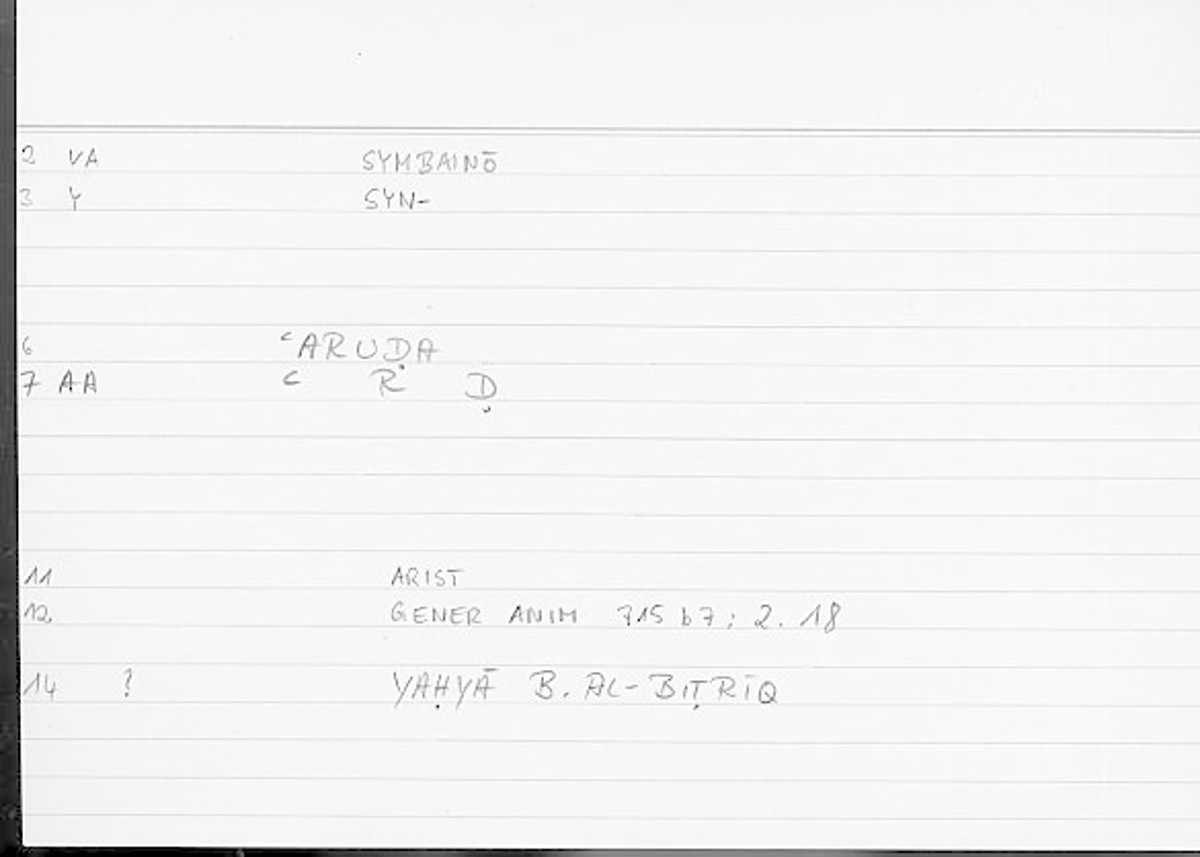 2 VA SYMBAINŌ
3 Y SYN-
6 ʿARUḌA
7 AA ʿ R Ḍ
11 ARIST
12 GENER ANIM 715 b7; 2.18
14 ? YAḤYĀ B. AL-BIṬRĪQ